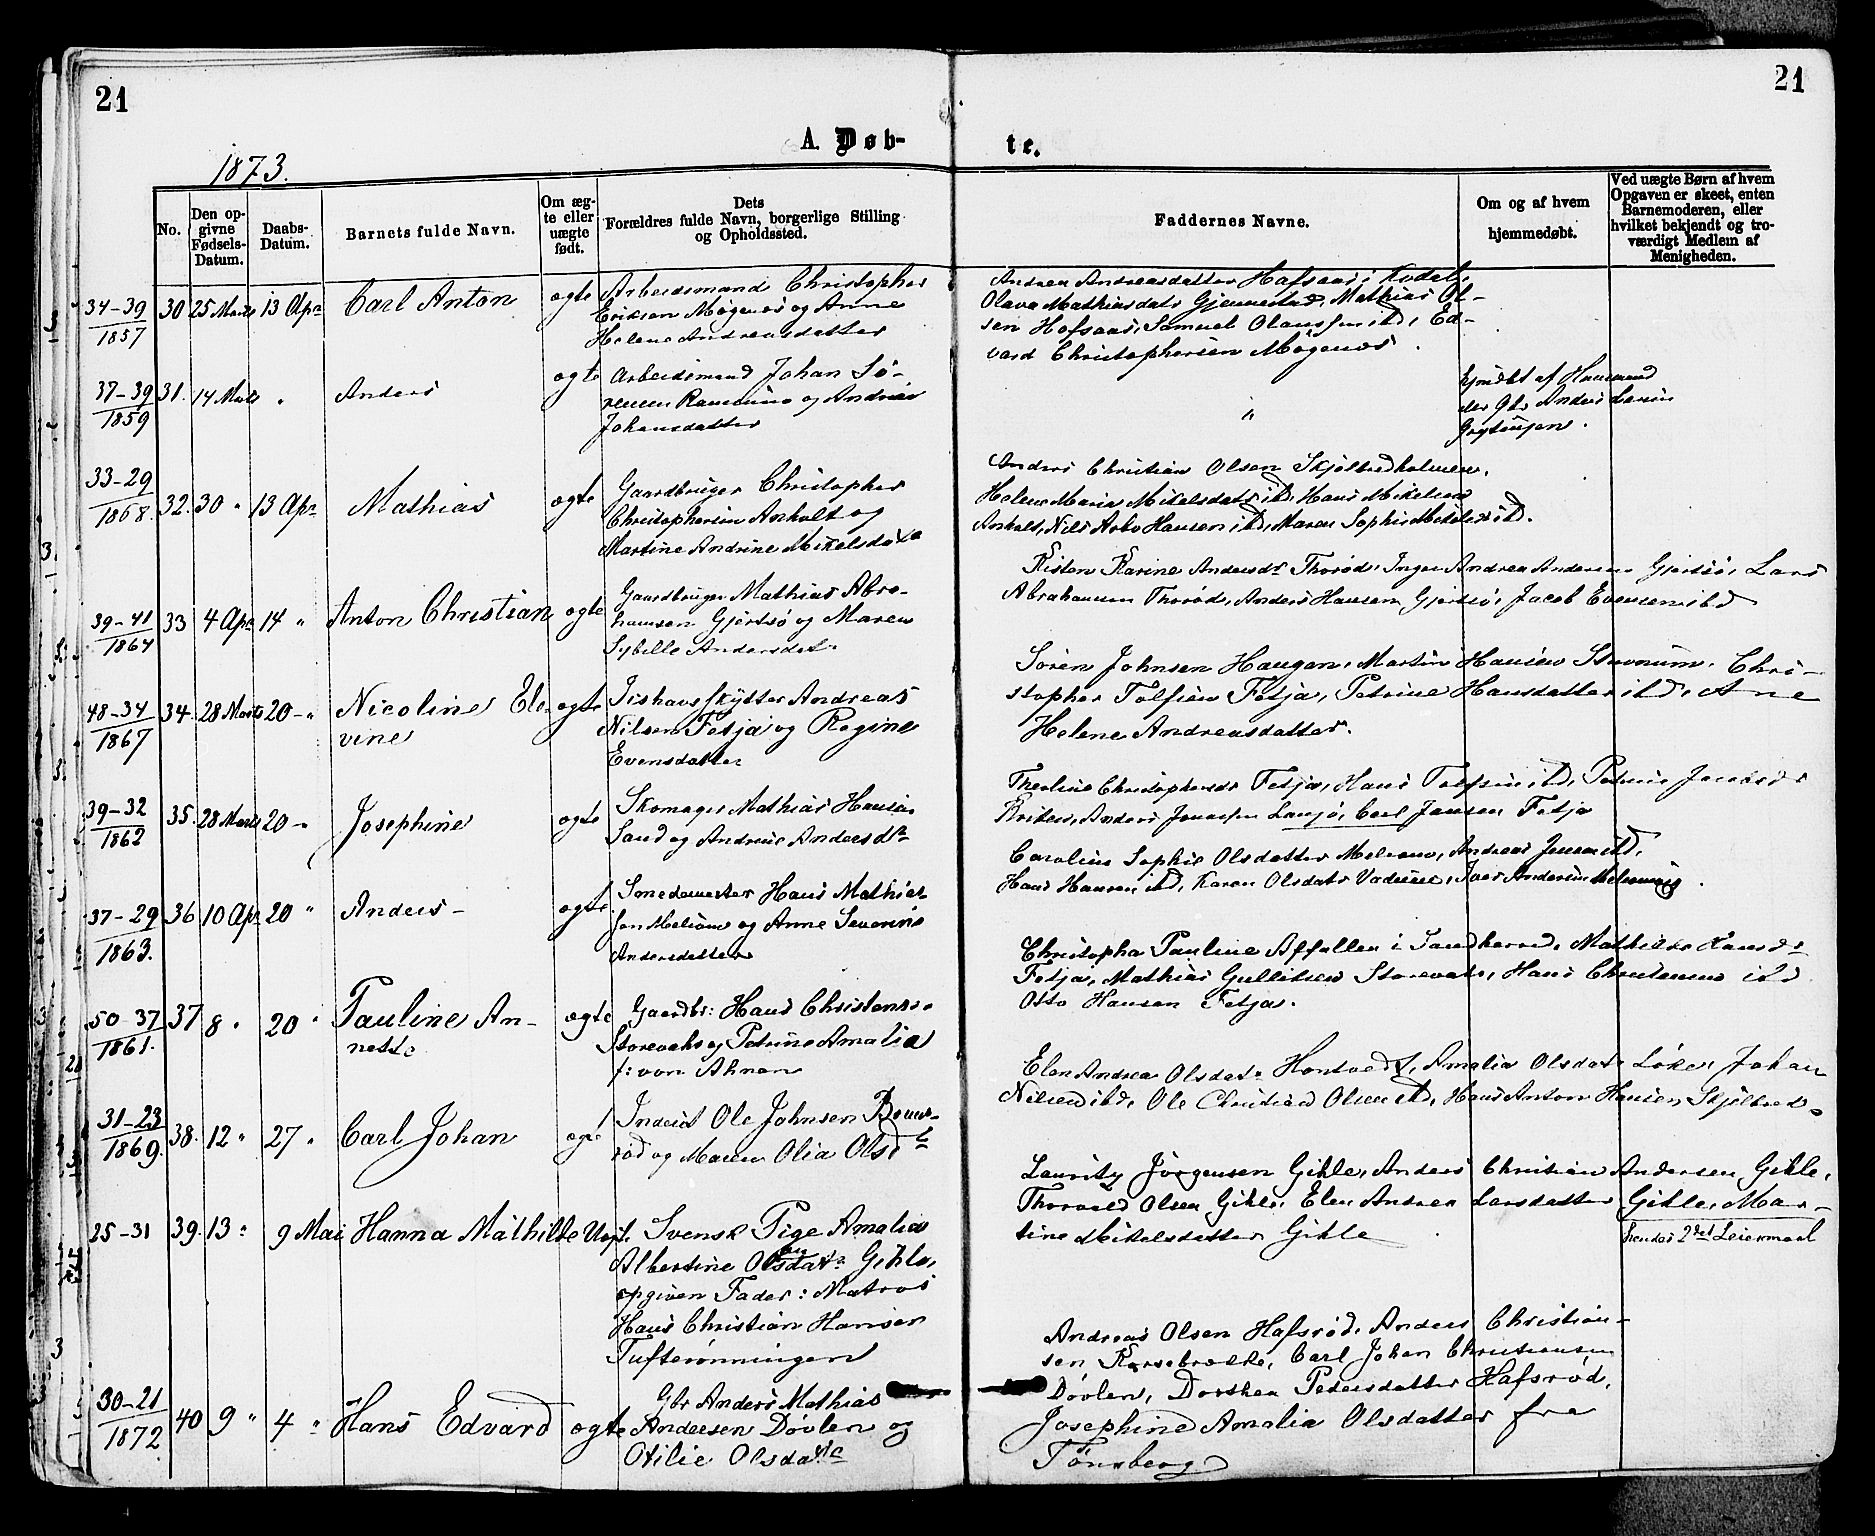 21
21
A. Døb-
te.
1873.
No.
Den op-
givne
Fødsels-
Datum.
Daabs-
Datum.
Barnets fulde Navn.
Om æg-
te eller
uægte
født.
Dets
Forældres fulde Navn, borgerlige Stilling
og Opholdssted.
Faddernes Navne.
Om og af hvem
hjemmedøbt.
Ved uægte Børn af hvem
Opgaven er skeet, enten
Barnemoderen, eller
hvilket bekjendt og tro-
værdigt Medlem af
Menigheden.
34-39
1857
30 25 Marts 13 Apr Carl Anton
ægte
Arbeidsmand Christopher
Eriksen Møgenæs og Anne
Helene Andreasdatter
Andrea Andreasdatter Hafsaas i Kodal,
Olava Mathiasdatr Gjennestad, Mathias Ol-
sen Hafsaas, Samuel Olaussen ibd, Ed-
vard Christophersen Møgenæs.
37-39
1859
31. 14 Marts " Anders
ægte
Arbeidsmand Johan Sö-
rensen Ramsum og Andrea
Johansdatter
"
Hjmdbt af
der Gbr Anders Larsen
33-29
1868.
32. 30 " 13 Apr Mathias
ægte
Gaardbruger Christopher
Christophersen Anholt og
Martine Andrine Mikelsdatr
Anders Christian Olsen Skjølbredholmen,
Helene Maria Mikelsdatr ibd, Hans Mikelsen
Anholt, Nils Arbo Hansen ibd, Maren Sophie Mikelsen ibd.
39-41
1864
33 4 Apr 14 " Anton Christian
ægte
Gaardbruger Mathias Abra-
hamsen Gjertsø og Maren
Sybille Andersdat.
Kisten Karine Andersdr Thorød, Inger Andrea Andersen Gjertsø, Lars
Abrahamsen Thorød, Anders Hansen Gjertsø, Jacob Evensen ibd
48-34
1867
34. 28 Marts 20 - " Nicoline Elo-
vine
ægte
Ishavsskytter Andreas
Nilsen Fetja og Regine
Evensdatter
Sören Johnsen Haugen, Martin Hansen Stuvnum, Chri-
stopher Tolfsen Fetja, Petrine Hansdatter ibd, Ane
Helene Andreasdatter.
39-32
1862
35. 28 Marts 20 - Josephine
ægte
Skomager Mathias Hansen
Sand og Andrine Andersdtr
Theoline Christophersdr Fetja, Hans Tolfsen ibd, Petrine Jacobsdr
Anders Jonassen Lansjø, Carl Jansen Fetja
37-29
1863.
36 10 Apr 20 " Anders -
ægte
Smedemester Hans Mathias-
sen Melsom og Anne Severine
Andersdatter
Caroline Sophie Olsdatter Melsom, Andreas Jensen ibd,
Hans Hansen ibd, Karen Olsdatr Iver Andersen Melsomvig.
50-37
1861.
37 8 " 20 " Pauline An-
nette
ægte
Gaardbr: Hans Christensen
Storevahr og Petrine Amalia
f: von Ahnen
Christopha Pauline Affallen i Sandherred, Mathilde Hansdr
Fetja, Mathias Gullitsen Storevahr, Hans Christensen ibd
Otto Hansen Fetja.
31-23
1869.
38. 12 " 27 " Carl Johan
ægte
Inderst Ole Johnsen
rød og Maren Olia Olsdtr
Elen Andrea Olsdatr Hontvedt, Amalia Olsdatr Løke, Johan
Nilsen ibd, Ole Christian Olsen ibd, Hans Anton Hansen Skjølbred.
25-31
39. 13 " 9 Mai Hanna Mathilde Uægt.
Svensk Pige Amalia
Albertine Olsdatr Gihle,
opgiven Fader: Matros
Hans Christian Hansen
Tufterønningen
Lauritz Jörgensen Gihle, Anders Christian Andersen Gihle,
Thorvald Olsen Gihle, Elen Andrea Larsdatter Gihle, Mar-
tine Mikelsdatter Gihle
hendes 2det Leiermaal
30-21
1872
40 9 " 4 " Hans Edvard
ægte
Gbr Anders Mathias
Andersen Døvlen og
Otilie Olsdatr
Andreas Olsen Hafsrød, Anders Christian-
sen Korsebrække, Carl Johan Christiansen
Døvlen, Dorthea Pedersdatter Hafsrød,
Josephine Amalia Olsdatter fra
Tønsberg